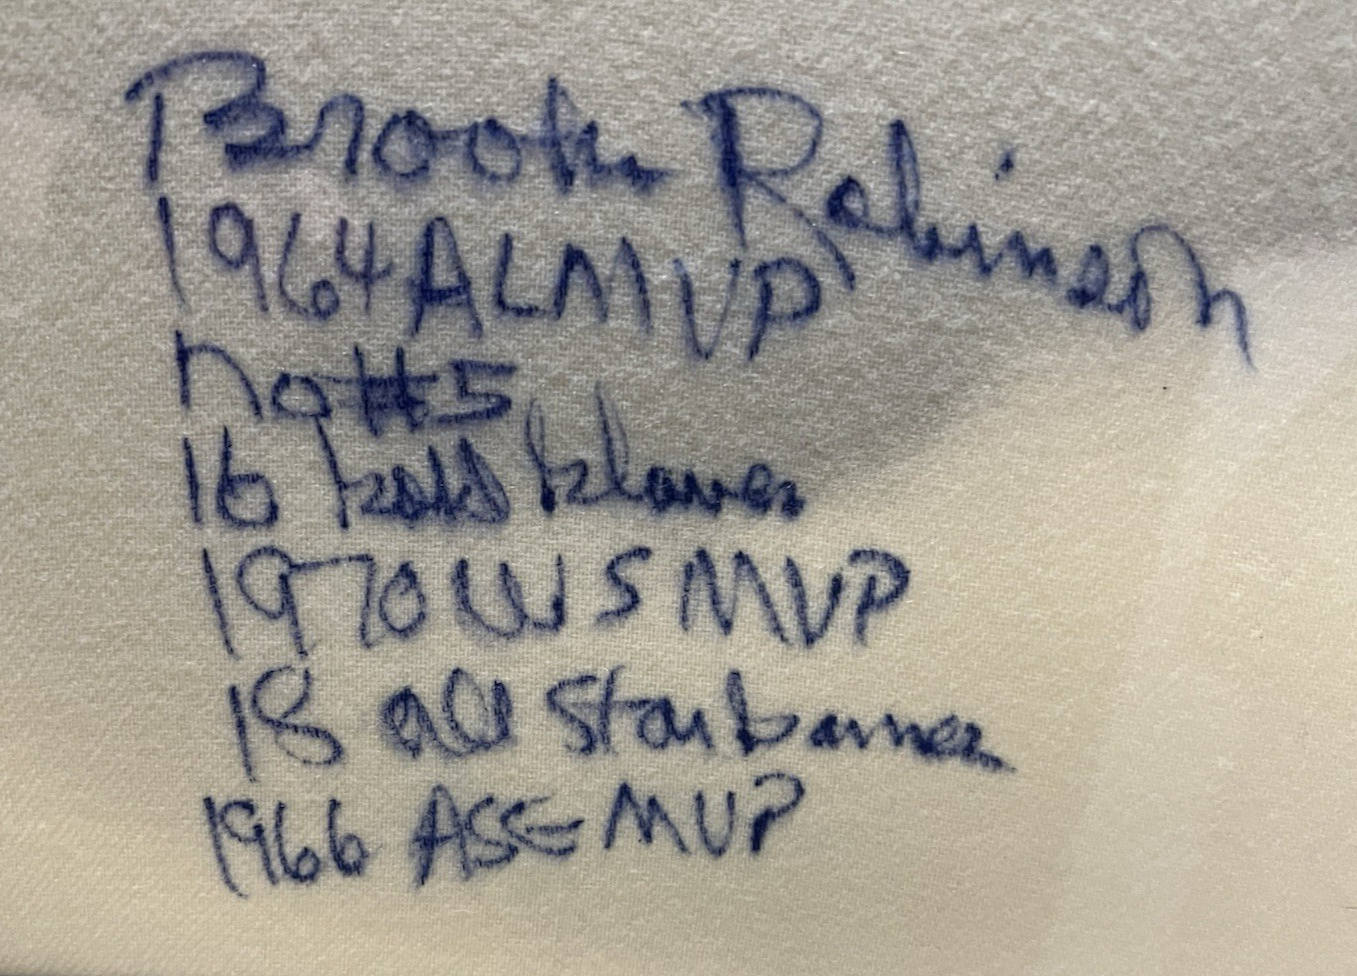 Brooks Robinson
1964 AL MVP
no #5
16 Gold Gloves
1970 WS MVP
18 all Star Games
1966 ASG MVP